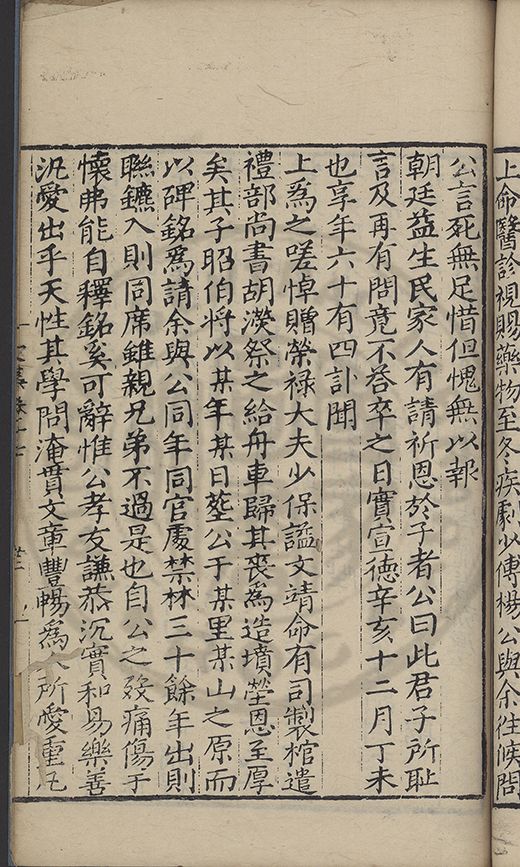 上命醫診視賜藥物至冬疾劇少傅楊公與余往候問
公言死無足惜但愧無以報
朝廷益生民家人有請祈恩於子者公曰此君子所恥
言及再有問竟不答卒之日實宣德辛亥十二月丁未
也享年六十有四訃聞
上為之嗟悼贈榮祿大夫少保諡文靖命有司製棺遣
禮部尚書胡濙祭之給舟車歸其喪為造墳塋恩至厚
矣其子昭伯將以某年某日塟公于某里某山之原而
以碑銘為請余與公同年同官處禁林三十餘年出則
聯鑣入則同席雖親兄弟不過是也自公之歿痛傷于
懷弗能自釋銘奚可辭惟公孝友謙恭沉實和易樂善
汎愛出乎天性其學問淹貫文章豐暢為 所愛重凡